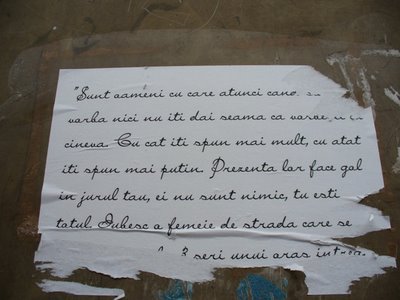 "Sunt oameni cu care atunci cand
vorba nici nu iti dai seama ca
cineva. Cu cat iti spun mai mult, cu atat
iti spun mai putin. Prezenta lor face gol
in jurul tau, ei nu sunt nimic, tu esti
totul. Iubesc o femeie de strada care se
seri unui oras